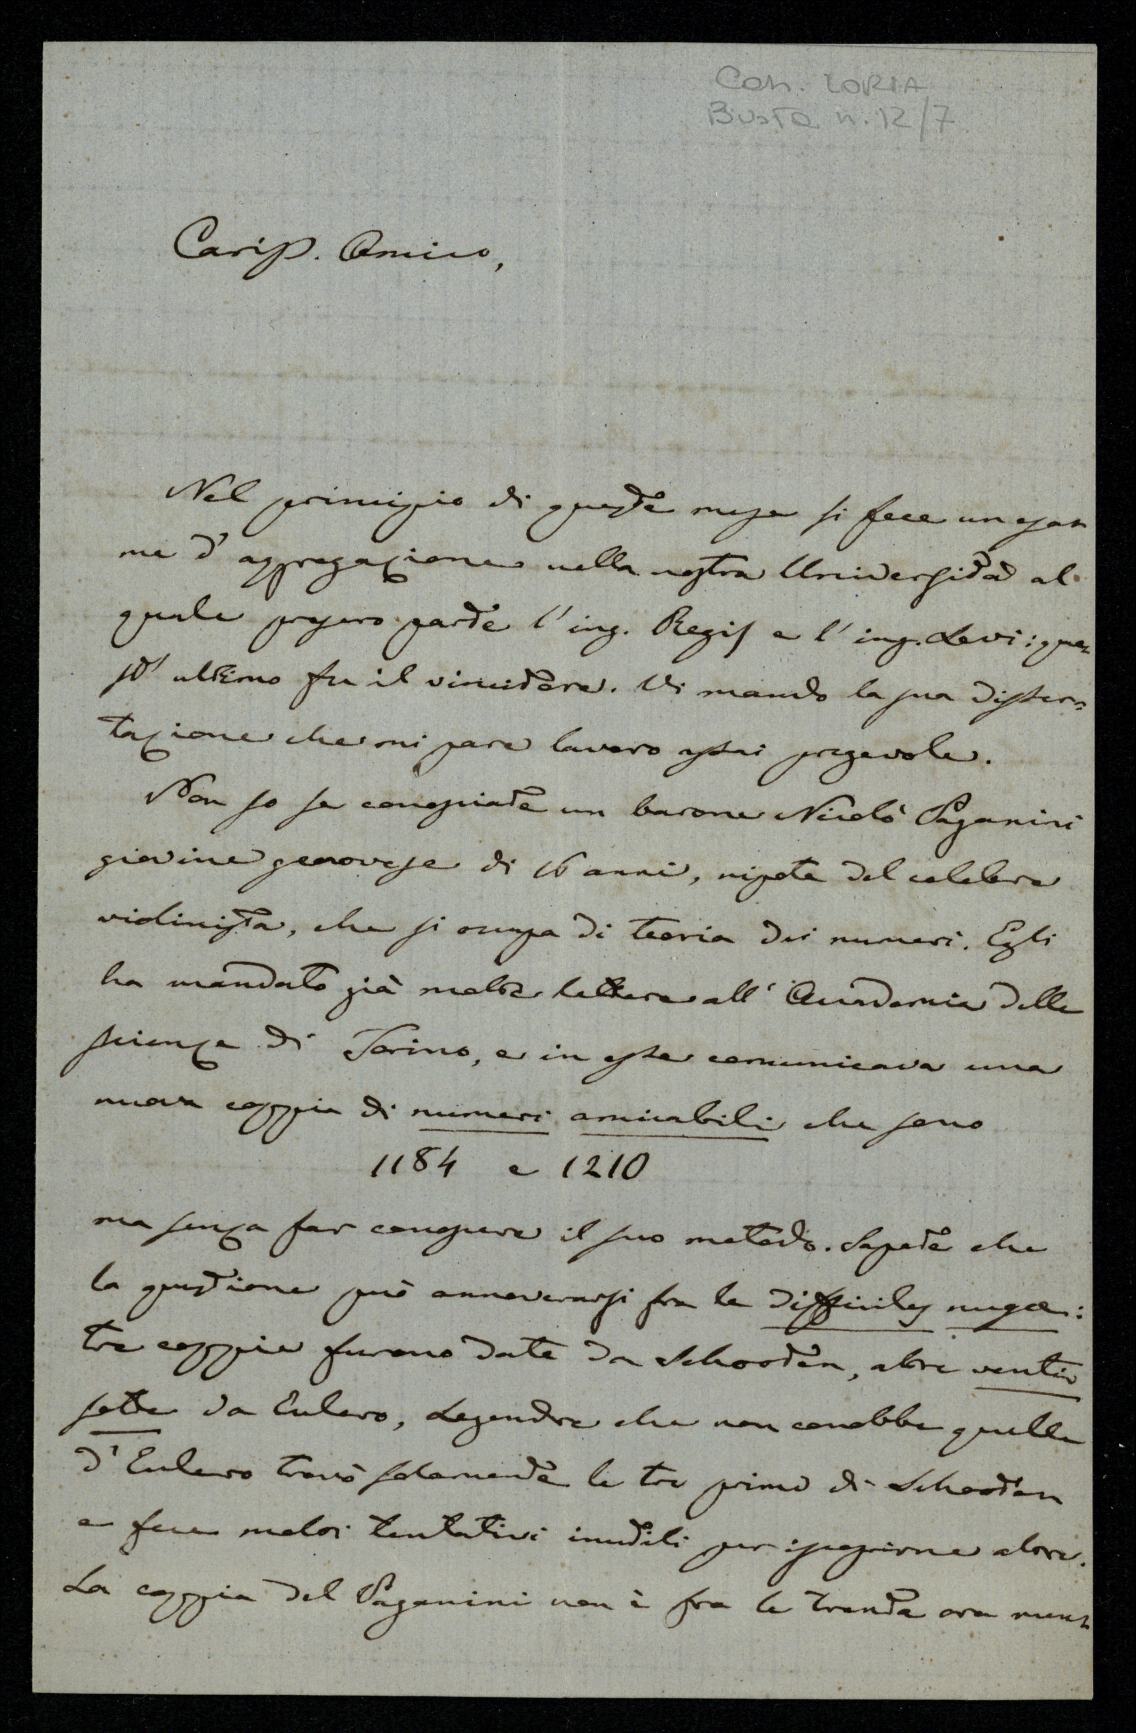 Con. LORIA
Busta n. 12/7
Cariss. Amico,
Nel principio di questo mese si fece un esa-
me d'aggregazione nella nostra Università al
quale presero parte l'ing. Regis e l'ing. Levi: que-
st'ultimo fu il vincitore. Vi mando la sua disser-
tazione che mi pare lavoro assai pregevole.
Non so se conosciate un barone Nicolò Paganini
giovine genovese di 16 anni, nipote del celebre
violinista, che si occupa di teoria dei numeri. Egli
ha mandato già molte lettere all'Accademia delle
scienze di Torino, e in esse comunicava una
nuova coppia di numeri amicabili che sono
1184 e 1210
ma senza far conoscere il suo metodo. Sapete che
la questione può annoverarsi fra le difficiles nugæ:
tre coppie furono date da Schooten, altre venti
sette da Eulero, Legendre che non conobbe quelle
d'Eulero trovò solamente le tre prime di Schooten
e fece molti tentativi inutili per iscoprirne altre.
La coppia del Paganini non è fra le trenta ora men-